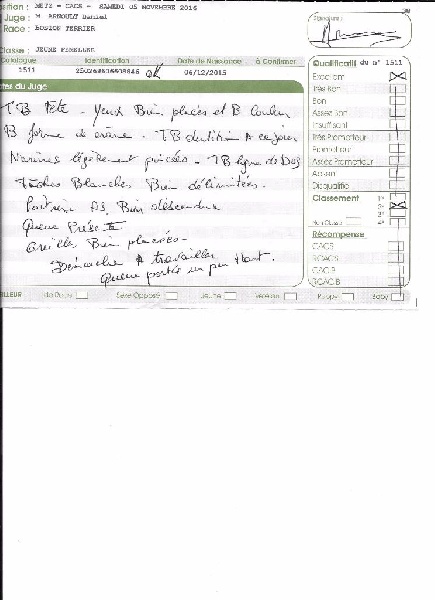 METZ - CACS - SAMEDI 05 NOVEMBRE 2016
Juge : M. ARNOULT Daniel
Race : BOSTON TERRIER
Signature
Classe : JEUNE FEMELLE
Catalogue Identification Date de Naissance à Confirmer
1511 OK 06/12/2015
Notes du Juge
TB Tête - Yeux Bien placés et B Couleur
B forme de crâne - TB dentition A ce jour
Narines légèrement pincées - TB ligne de DOS
Taches Blanches Bien délimitées.
Poitrine AS Bien descendue
Queue Présente
Oreilles Bien placées -
Démarche A travailler
Queue portée un peu Haut.
Qualificatif du n° 1511
Excellent
Très Bon
Bon
Assez Bon
Insuffisant
Très Prometteur
Prometteur
Assez Prometteur
Absent
Disqualifié
Classement 1er
2e
3e
Non Classé 4e
Récompense
CACS
RCACS
CACIB
RCACIB
Sexe Opposé Jeune Vétéran Puppy Baby